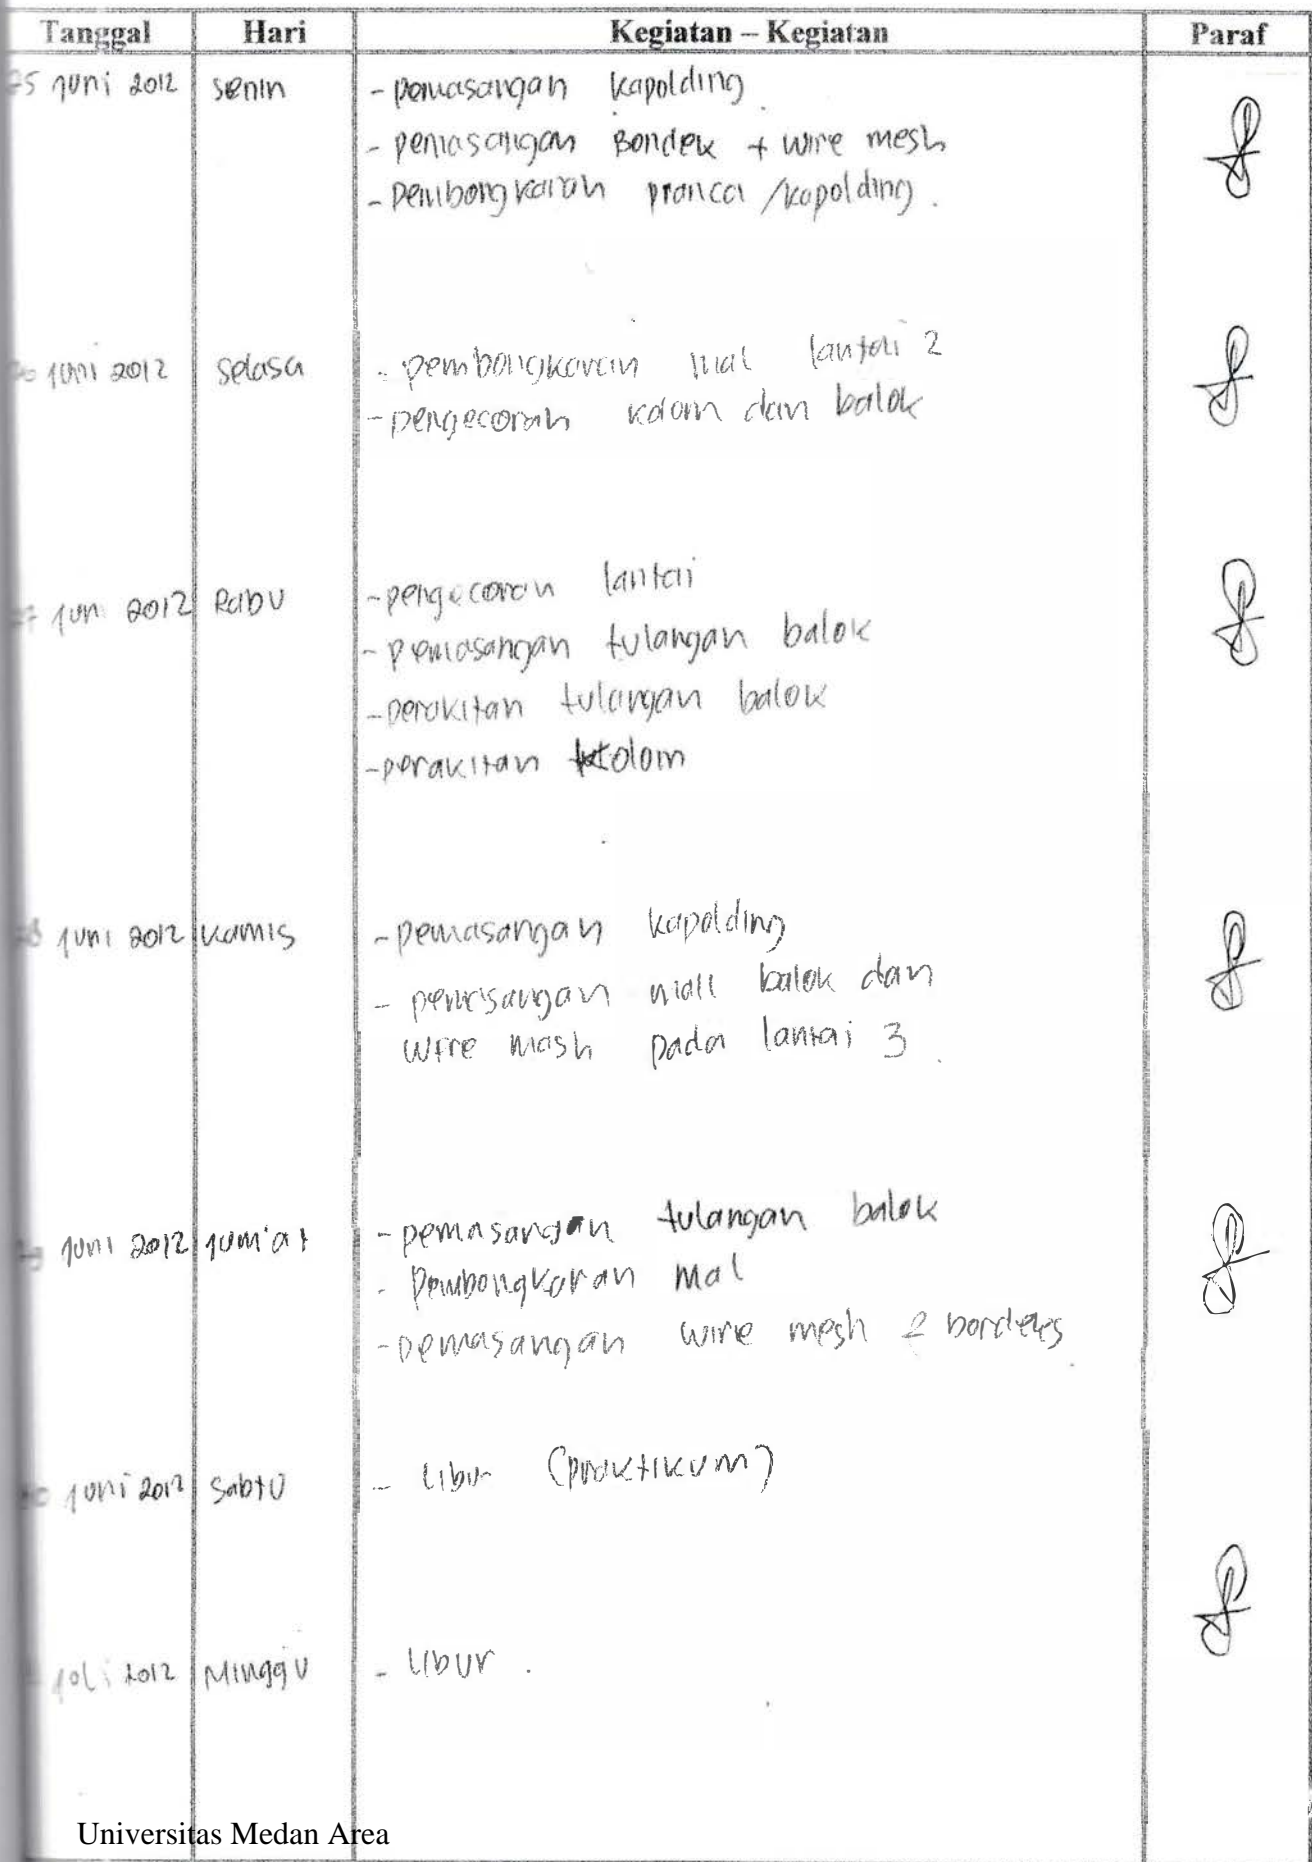 Tanggal Hari Kegiatan – Kegiatan Paraf
25 Juni 2012 Senin - pemasangan kapolding
- pemasangan Bondek + wire mesh
- pembongkaran pranca /kapolding.
Juni 2012 Selasa - pembongkaran mal lantai 2
- pengecoran kolom dan balok
Juni 2012 Rabu - pengecoran lantai
- pemasangan tulangan balok
- perakitan tulangan balok
- perakitan kolom
Juni 2012 Kamis - pemasangan kapolding
- pemasangan mall balok dan
wire mash pada lantai 3
Juni 2012 Jum'at - pemasangan tulangan balok
- Pembongkaran mal
- pemasangan wire mesh 2 bordes
Juni 2012 Sabtu - Libur (praktikum)
Juli 2012 Minggu - Libur.
Universitas Medan Area